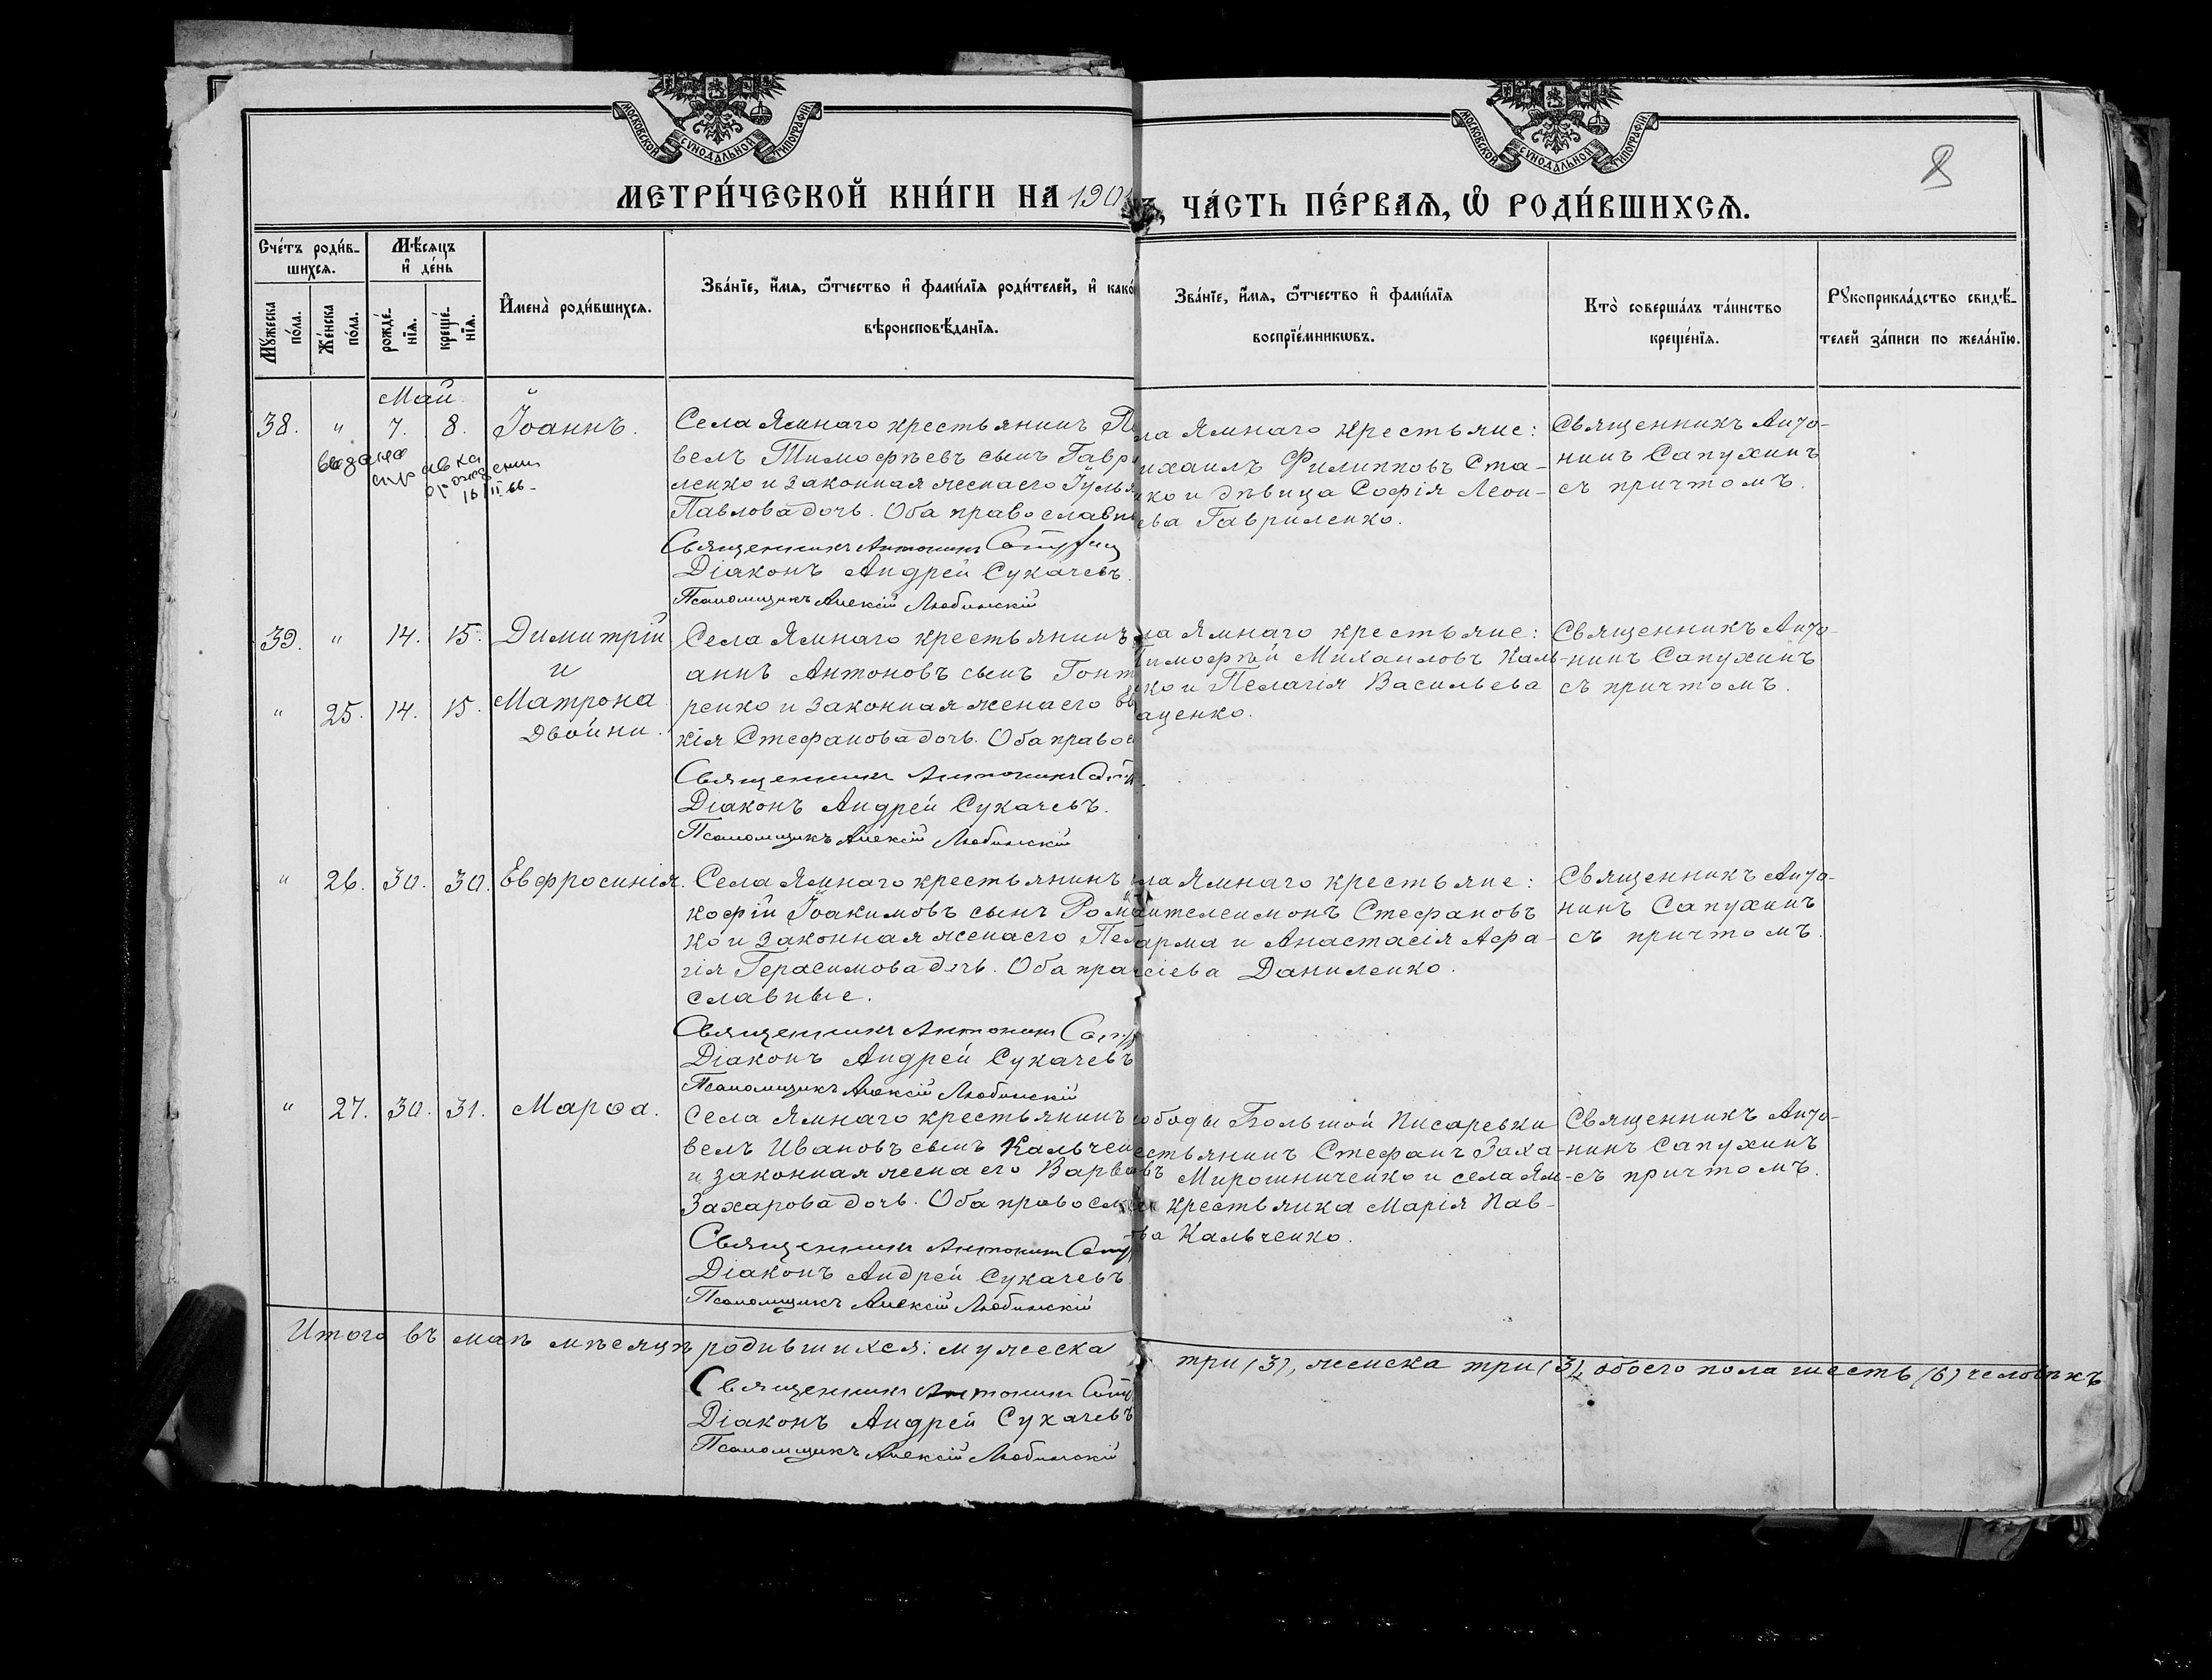 МОСКОВСКОЙ СѴНОДАЛЬНОЙ ТИПОГРАФІИ
МОСКОВСКОЙ СѴНОДАЛЬНОЙ ТИПОГРАФІИ
8
МЕТРИ́ЧЕСКОЙ КНИ́ГИ НА 190
Ъ, ЧА́СТЬ ПЕ́РВАѦ, Ѡ҆ РОДИ́ВШИХСѦ.
Сче́тъ роди́в-
шихсѧ.
Мѣ́сѧцъ
и҆ де́нь
Мꙋ́жеска
по́ла.
Же́нска
по́ла.
рожде́-
нїѧ.
креще́-
нїѧ.
И҆мена̀ роди́вшихсѧ.
Зва́нїе, и҆́мѧ, ѻ҆́тчество и҆ фами́лїѧ роди́телей, и҆ како́
вѣроисповѣ́данїѧ.
Зва́нїе, и҆́мѧ, ѻ҆́тчество и҆ фами́лїѧ
воспрїе́мникѡвъ.
Кто̀ соверша́лъ та́инство
креще́нїѧ.
Рꙋкоприкла́дство свидѣ́-
телей за́писи по жела́нїю.
Май
38. " 7. 8. Іоаннъ.
выдана
справка
о рождении
16/II 66-
Села Ямнаго крестьянинъ Па
велъ Тимофѣевъ сынъ Гавр
ленко и законная жена его Іулья
Павлова дочь. Оба православн
Священникъ Антонинъ Сапухин
Діаконъ Андрей Сукачевъ.
Псаломщикъ Алексій Любинскій
ла Ямнаго крестьяне:
ихаилъ Филипповъ Ста-
нко и дѣвица Софія Леон-
ева Гавриленко.
Священникъ Анто-
нинъ Сапухинъ
съ причтомъ.
39. " 14. 15. Димитрій
и
" 25. 14. 15. Матрона
Двойни.
Села Ямнаго крестьянинъ
аннъ Антоновъ сынъ Гонт
ренко и законная жена его Ев
кія Стефанова дочь. Оба правос
Священникъ Антонинъ Сапу
Діаконъ Андрей Сукачевъ.
Псаломщикъ Алексій Любинскій
ла Ямнаго крестьяне:
Тимофѣй Михаиловъ Каль-
ко и Пелагія Васильева
аценко.
Священникъ Анто-
нинъ Сапухинъ
съ причтомъ.
" 26. 30. 30. Евфросинія.
Села Ямнаго крестьянинъ
кофій Іоакимовъ сынъ Рома
ко и законная жена его Пела
гія Герасимова дочь. Оба пра
славные.
Священникъ Антонинъ Сапу
Діаконъ Андрей Сукачевъ
Псаломщикъ Алексій Любинскій
ла Ямнаго крестьяне:
нтелеимонъ Стефановъ
арма и Анастасія Афа-
сіева Даниленко.
Священникъ Анто-
нинъ Сапухинъ
съ причтомъ.
" 27. 30. 31. Марѳа.
Села Ямнаго крестьянинъ
велъ Ивановъ сынъ Кальчен
и законная жена его Варва
Захарова дочь. Оба правосл
Священникъ Антонинъ Сапу
Діаконъ Андрей Сукачевъ
Псаломщикъ Алексій Любинскій
ободы Большой Писаревки
естьянинъ Стефанъ Заха-
въ Мирошниченко и села Ям-
крестьянка Марія Пав-
ва Кальченко.
Священникъ Анто-
нинъ Сапухинъ
съ причтомъ.
Итого въ маѣ мѣсяцѣ родившихся: мужеска
три (3), женска три (3), обоего пола шесть (6) человѣкъ
Священникъ Антонинъ Сапу
Діаконъ Андрей Сукачевъ
Псаломщикъ Алексій Любинскій